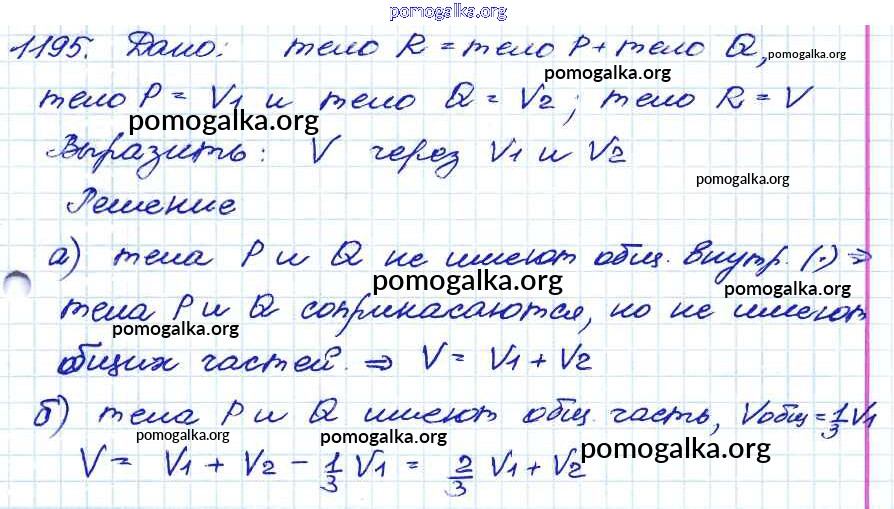 pomogalka.org
1195. Дано: тело R = тело P + тело Q,
pomogalka.org
pomogalka.org
тело P = V1 и тело Q = V2; тело R = V
pomogalka.org
Выразить: V через V1 и V2
pomogalka.org
Решение
а) тела P и Q не имеют общ. внутр. (·) ⇒
pomogalka.org
pomogalka.org
тела P и Q соприкасаются, но не имеют
pomogalka.org
общих частей. ⇒ V = V1 + V2
pomogalka.org
б) тела P и Q имеют общ. часть, Vобщ = 1/3 V1
pomogalka.org
pomogalka.org
pomogalka.org
V = V1 + V2 − 1/3 V1 = 2/3 V1 + V2